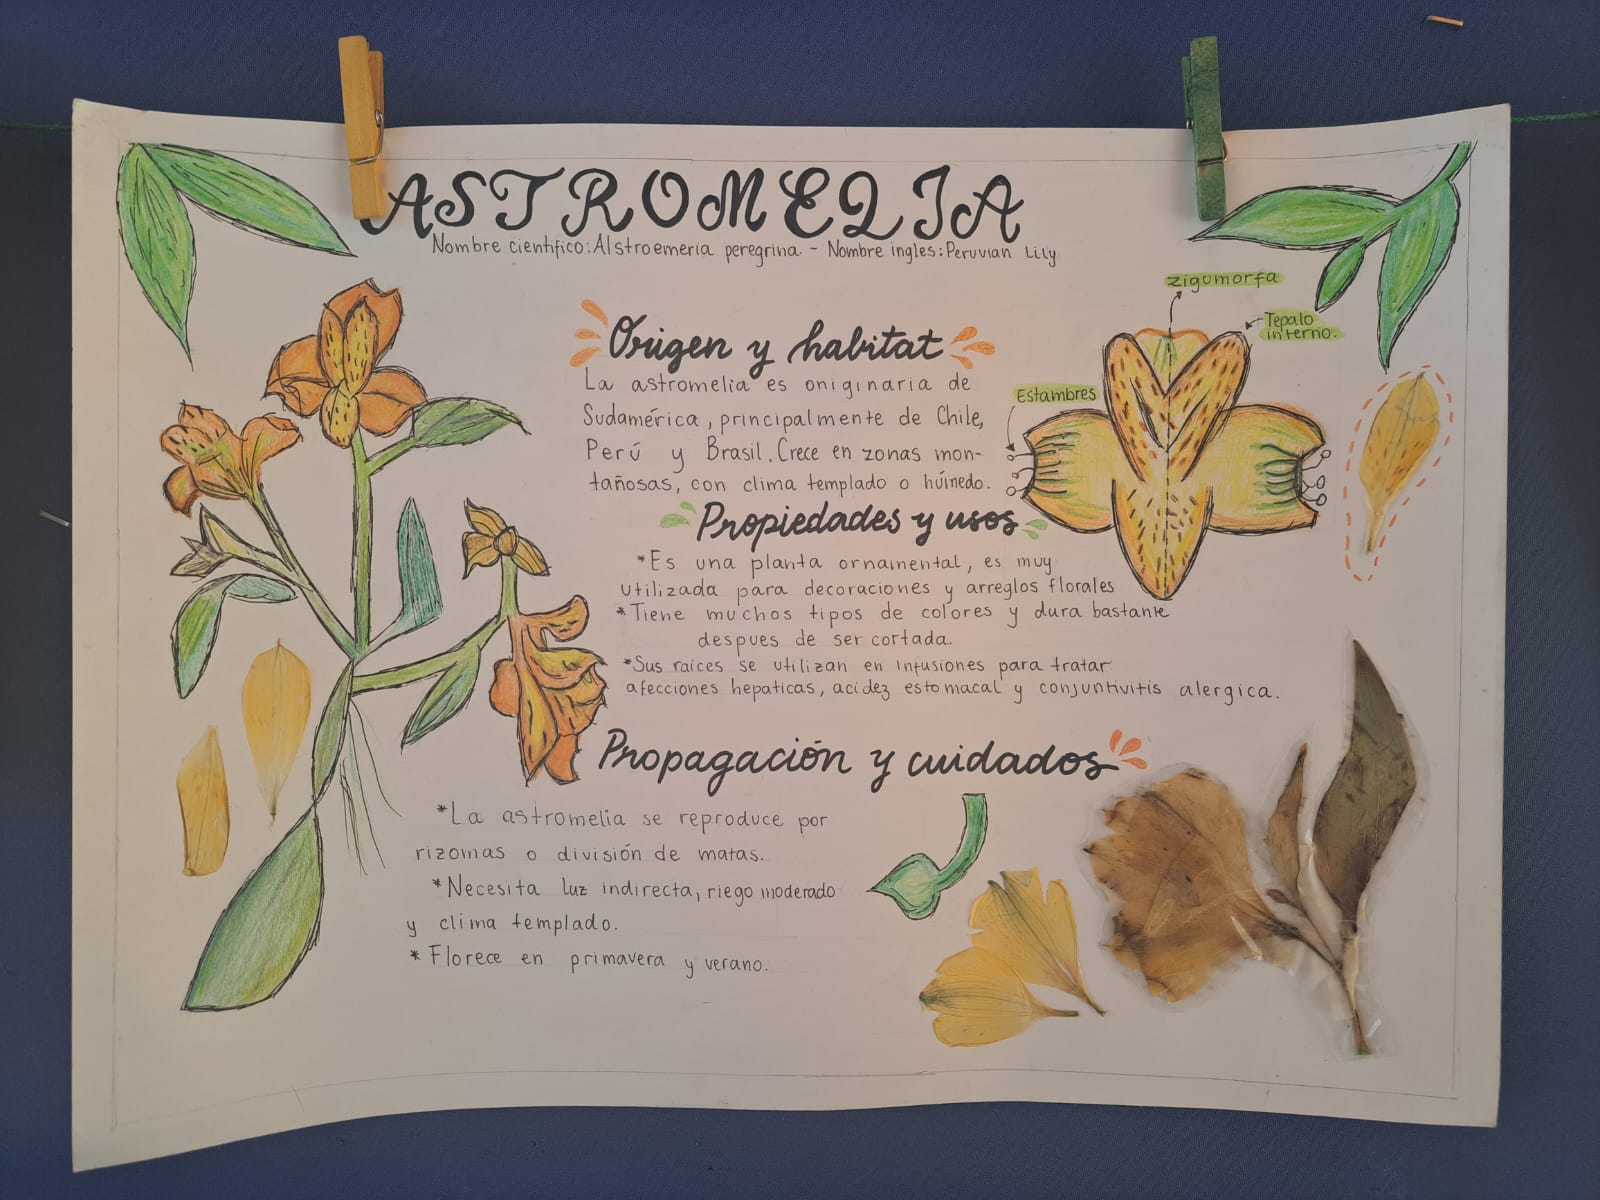 ASTROMELIA
Nombre cientifico: Alstroemeria peregrina. - Nombre ingles: Peruvian Lily
zigomorfa
Tepalo
interno.
Estambres
Origen y habitat
La astromelia es originaria de
Sudamérica, principalmente de Chile,
Perú y Brasil. Crece en zonas mon-
tañosas, con clima templado o húmedo.
Propiedades y usos
*Es una planta ornamental, es muy
utilizada para decoraciones y arreglos florales
*Tiene muchos tipos de colores y dura bastante
despues de ser cortada.
*Sus raíces se utilizan en infusiones para tratar
afecciones hepaticas, acidez estomacal y conjuntivitis alergica.
Propagación y cuidados
*La astromelia se reproduce por
rizomas o división de matas.
*Necesita luz indirecta, riego moderado
y clima templado.
* Florece en primavera y verano.